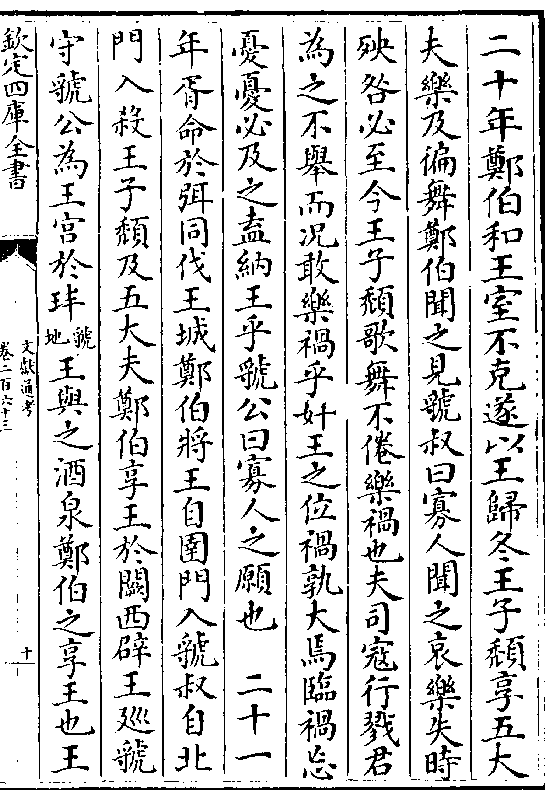 二十年鄭伯和王室不克遂以王歸冬王子頽享五大
夫樂及徧舞鄭伯聞之見虢叔曰寡人聞之哀樂失時
殃咎必至今王子頽歌舞不倦樂禍也夫司寇行戮君
為之不舉而况敢樂禍乎奸王之位禍孰大焉臨禍忘
憂憂必及之盍納王乎虢公曰寡人之願也　二十一
年胥命於弭同伐王城鄭伯將王自圉門入虢叔自北
門入殺王子頽及五大夫鄭伯享王於闕西辟王廵虢
守虢公為王宫於玤虢地王與之酒泉鄭伯之享王也王
欽定四庫全書
文獻通考
卷二百六十三
十